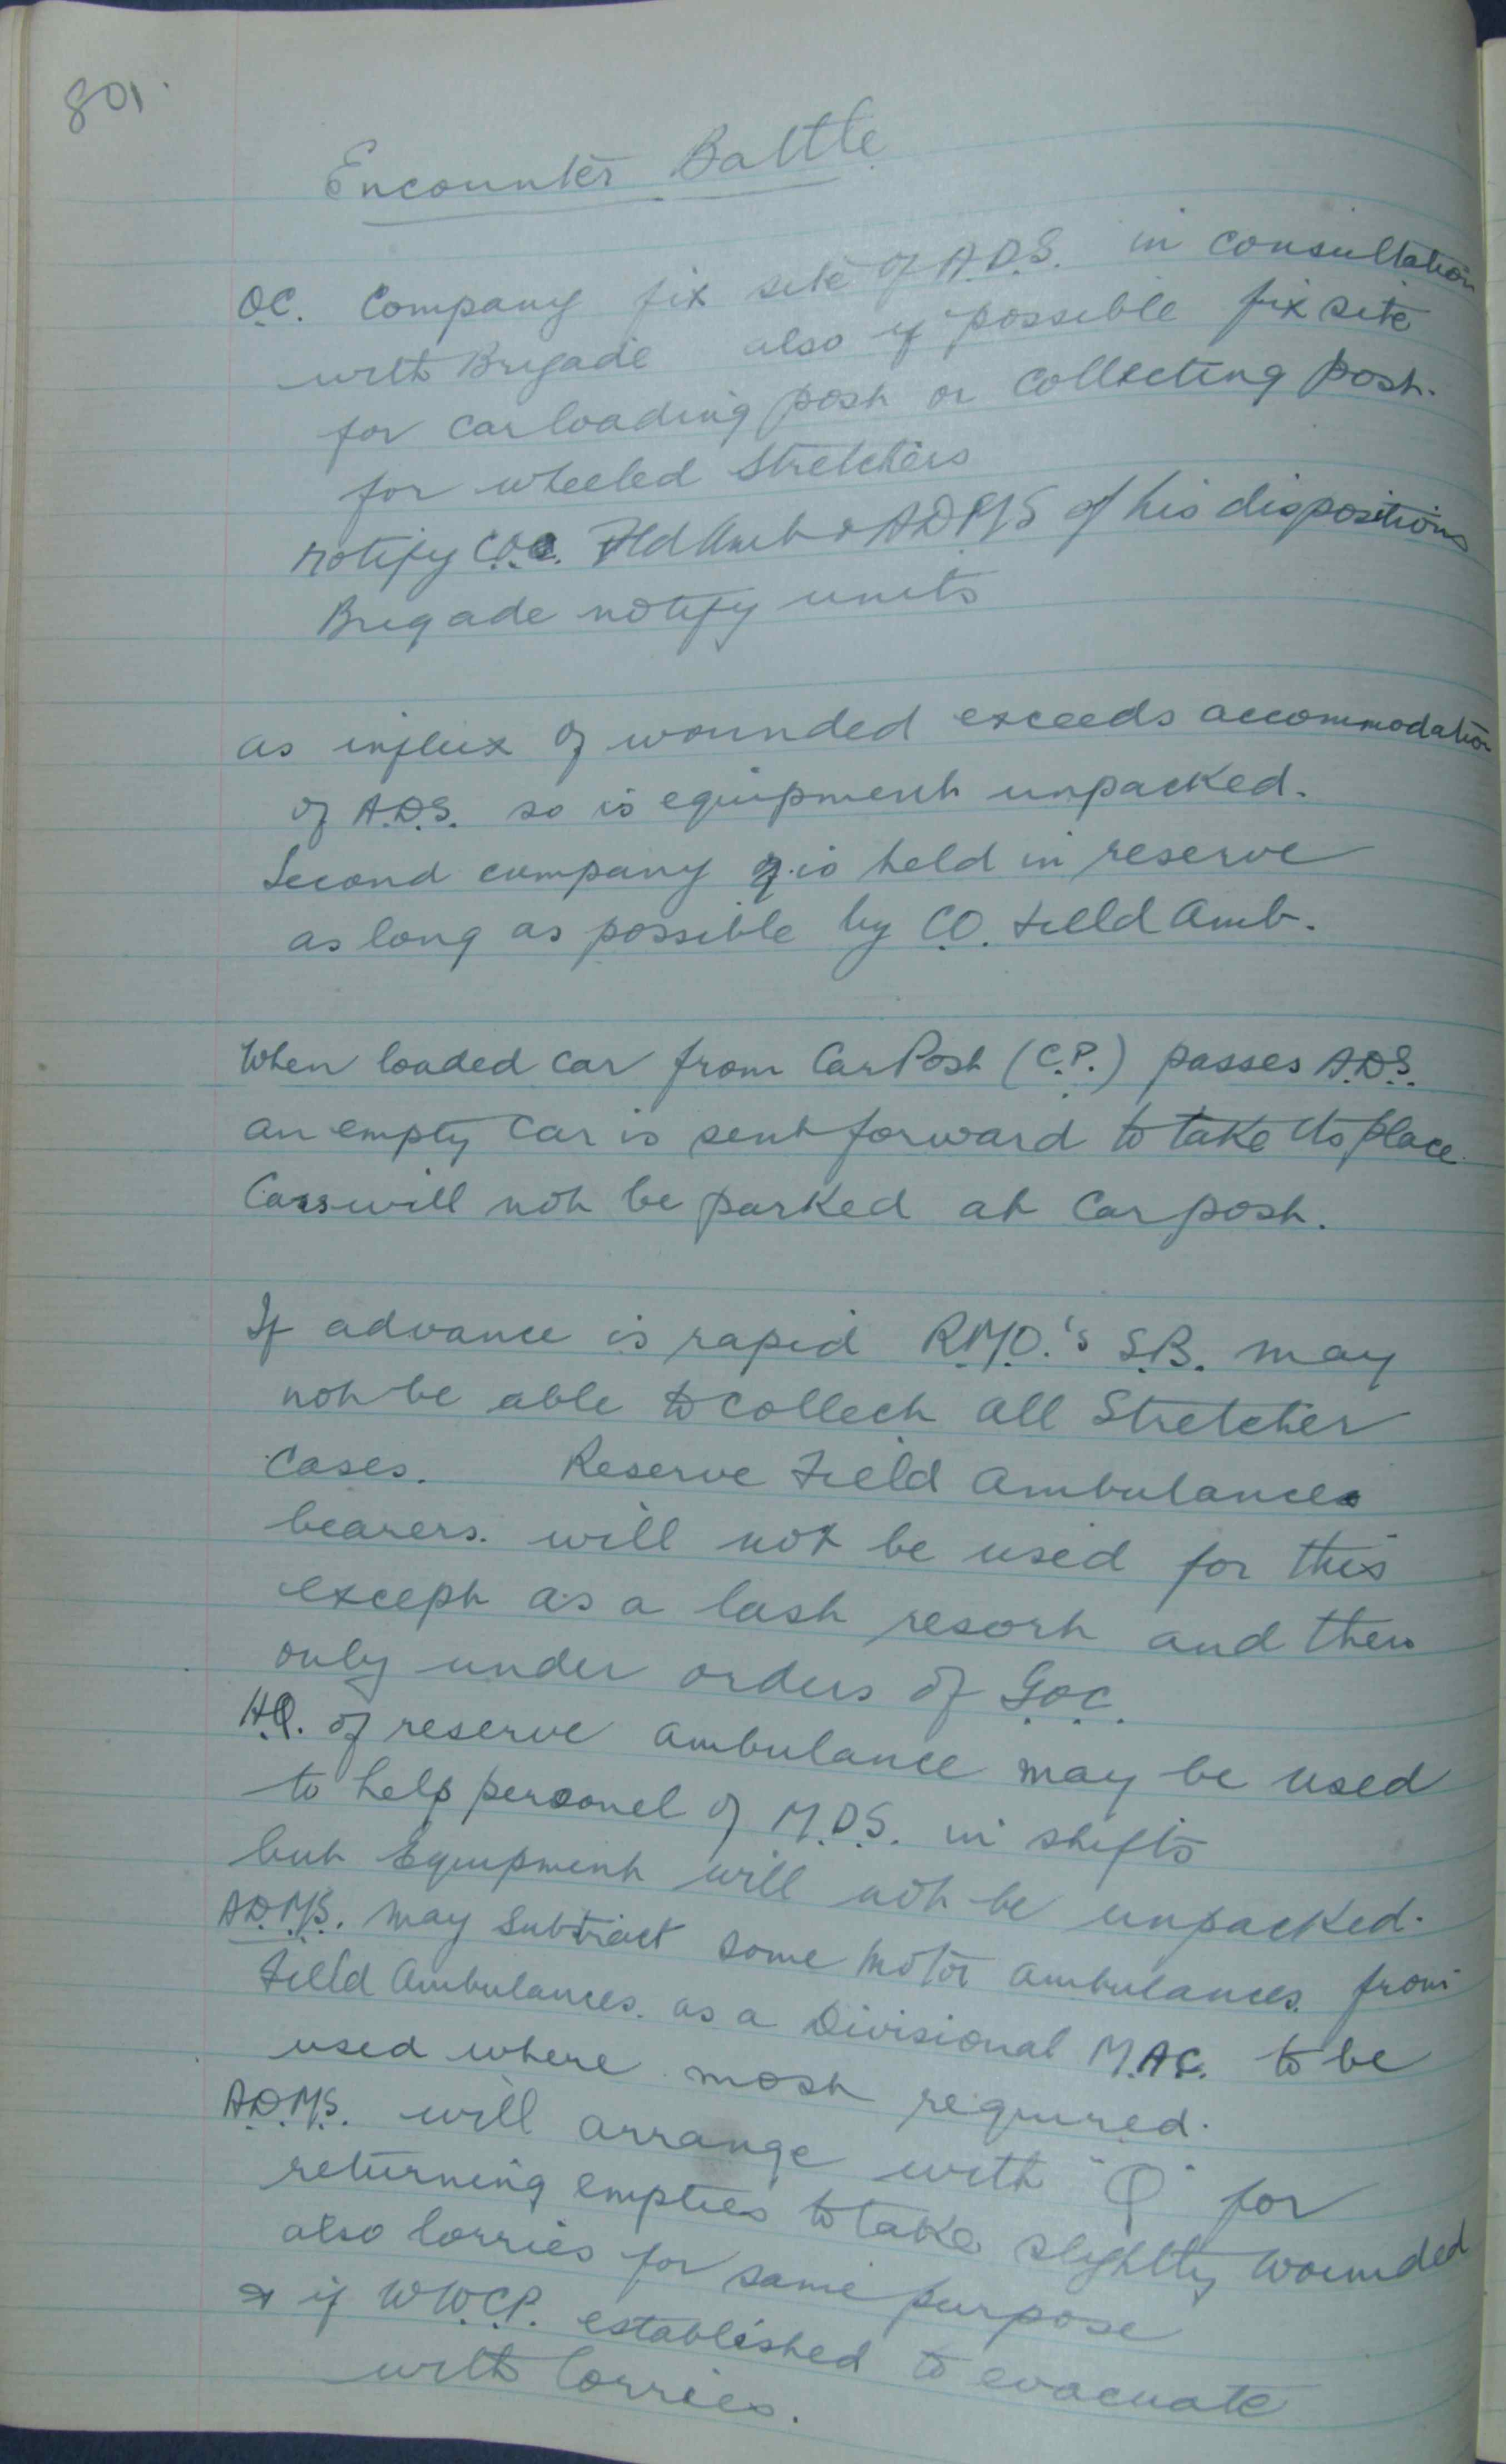 801.
Encounter Battle
O.C. Company fix site of A.D.S. in consultation
with Brigade also if possible fix site
for car loading post or collecting post.
for wheeled stretchers
notify C.O. Fld Amb & ADMS of his dispositions
Brigade notify units
as influx of wounded exceeds accommodation
of A.D.S. so is equipment unpacked.
Second company is held in reserve
as long as possible by C.O. Field Amb.
When loaded car from Car Post (C.P.) passes A.D.S.
an empty car is sent forward to take its place.
Cars will not be parked at Car post.
If advance is rapid R.M.O.'s S.B. may
not be able to collect all Stretcher
cases. Reserve Field Ambulance
bearers. will not be used for this
except as a last resort and then
only under orders of G.O.C.
H.Q. of reserve ambulance may be used
to help personel of M.D.S. in shifts
but Equipment will not be unpacked.
A.D.M.S. may subtract some motor ambulances from
Field Ambulances. as a Divisional M.A.C. to be
used where most required.
A.D.M.S. will arrange with "Q" for
returning empties to take slightly wounded
also lorries for same purpose
& if W.W.C.P. established to evacuate
with lorries.